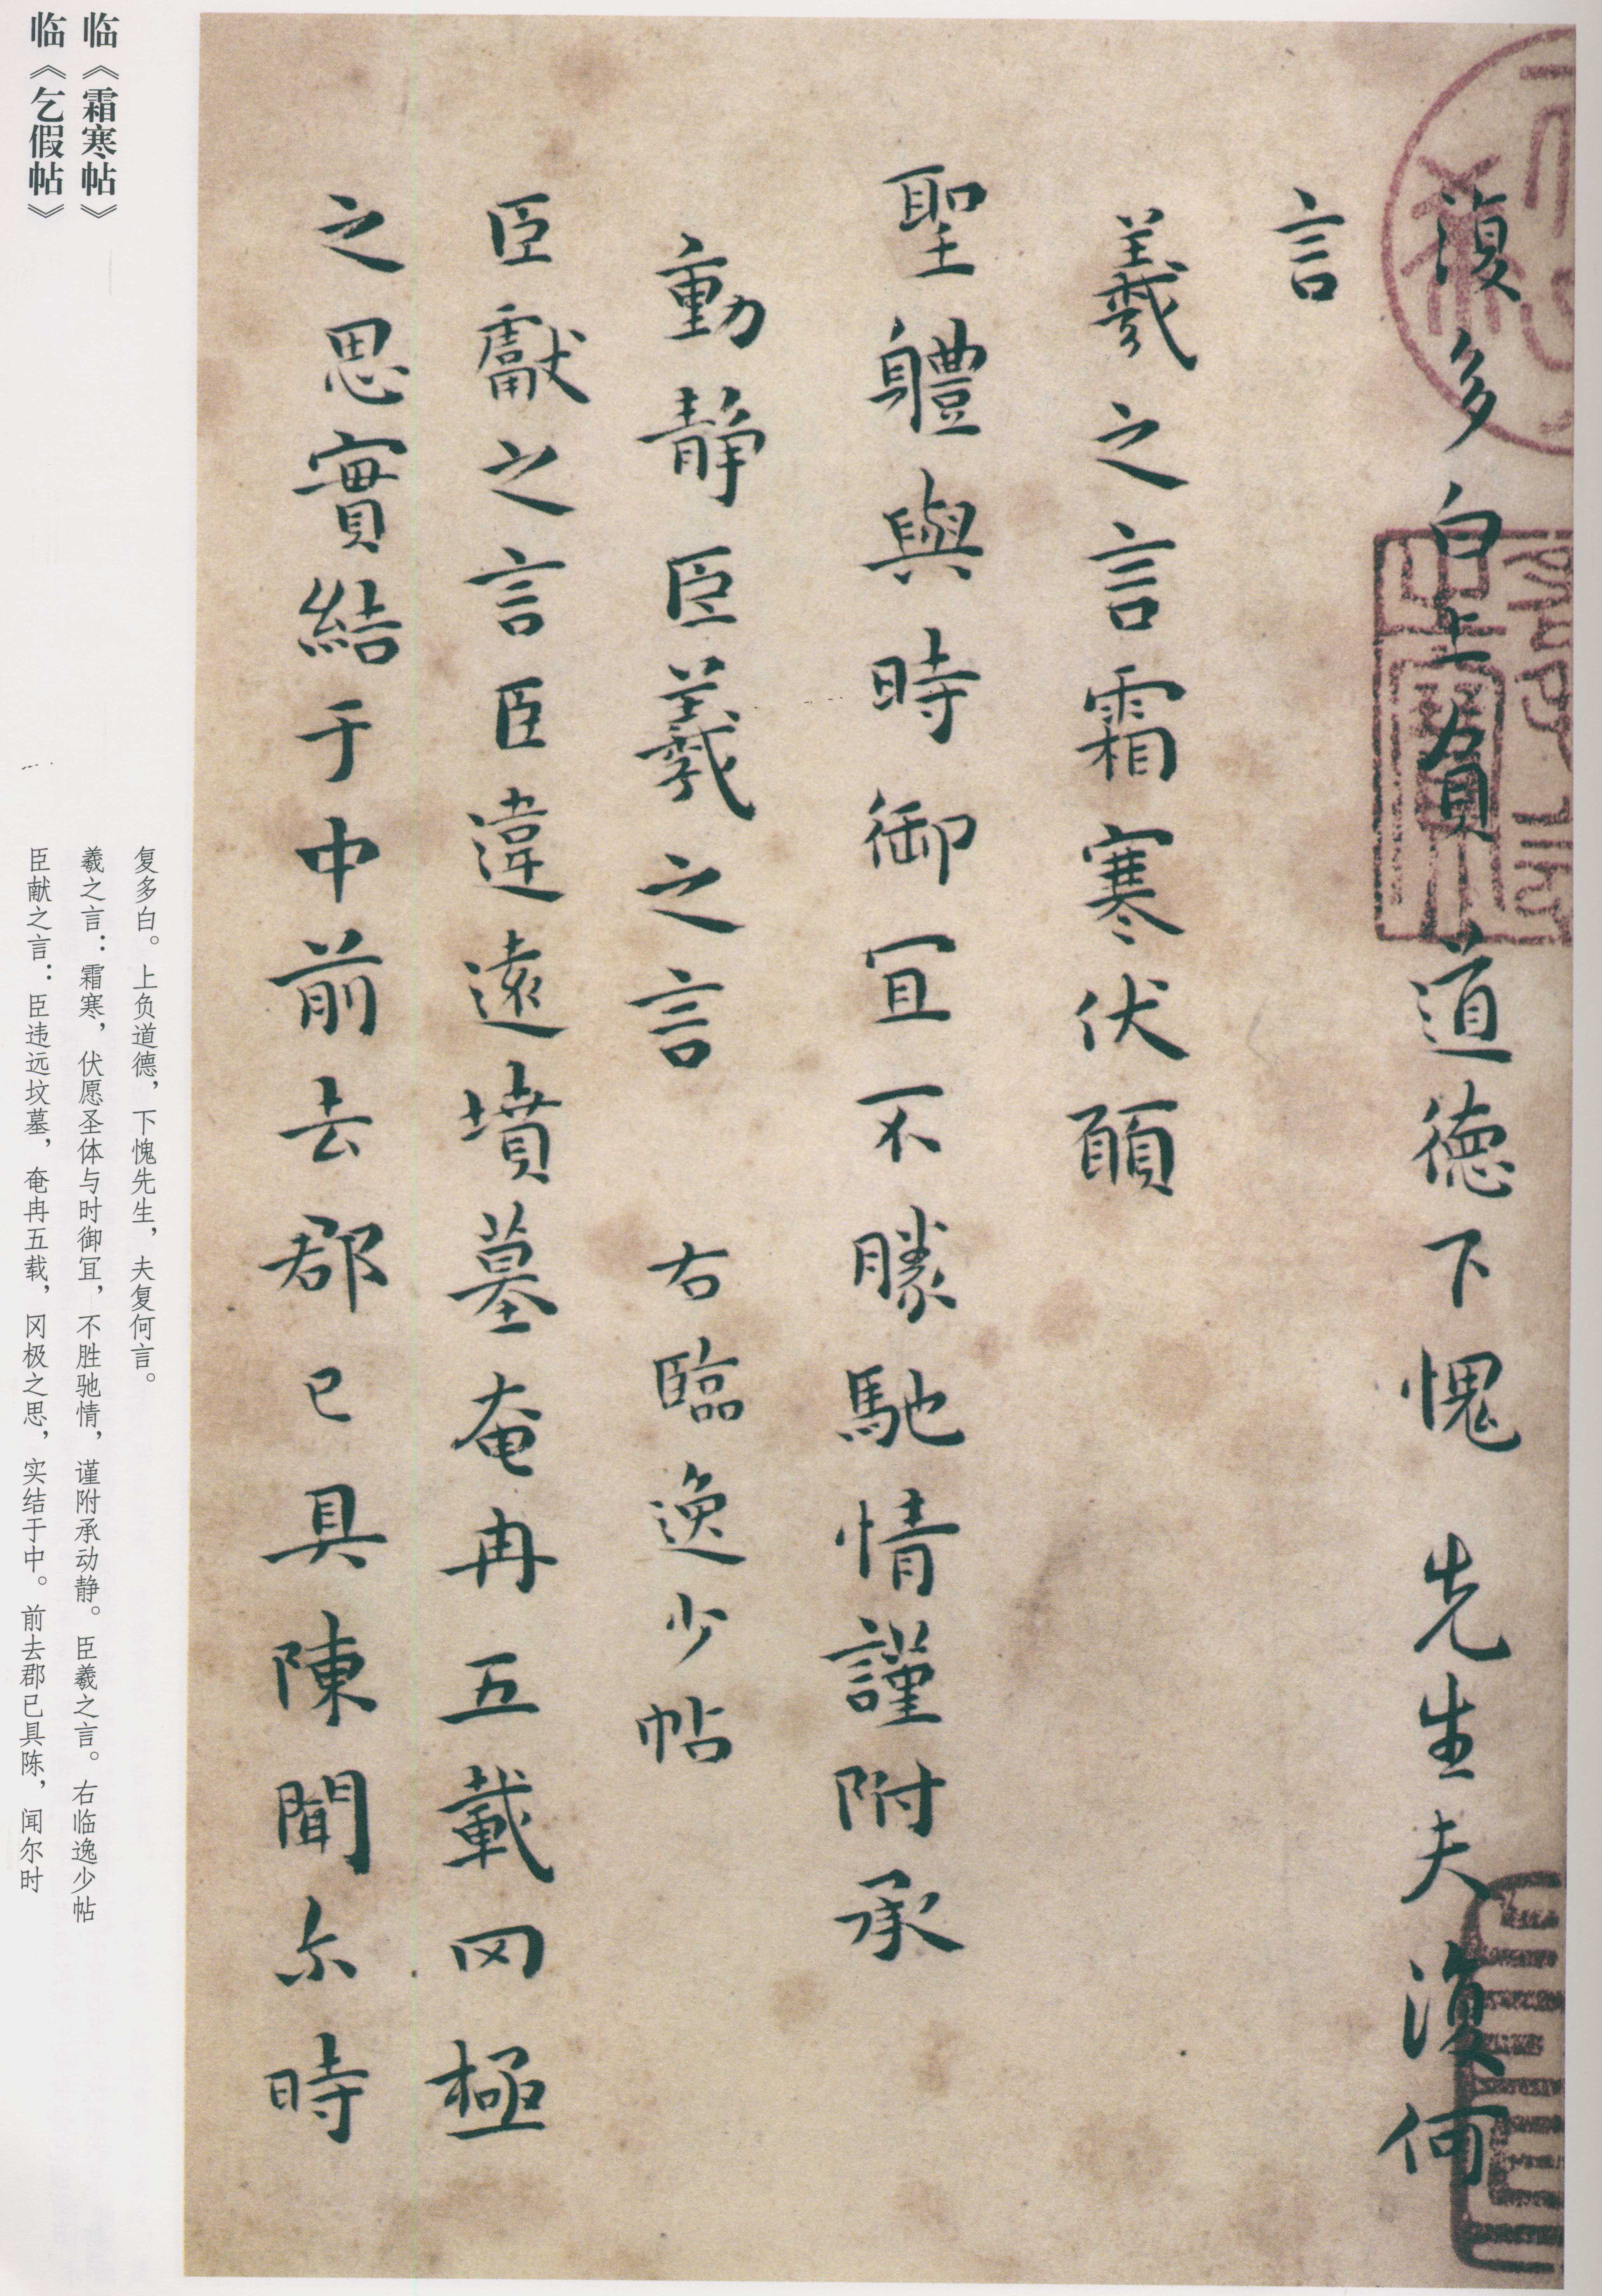 復多白上負道德下愧先生夫復何
言
羲之言霜寒伏願
聖體與時御宜不勝馳情謹附承
動靜臣羲之言 右臨逸少帖
臣獻之言臣違遠墳墓奄冉五載罔極
之思實結于中前去郡已具陳聞尔時
临《霜寒帖》
临《乞假帖》
复多白。上负道德，下愧先生，夫复何言。
羲之言：霜寒，伏愿圣体与时御宜，不胜驰情，谨附承动静。臣羲之言。右临逸少帖
臣献之言：臣违远坟墓，奄冉五载，冈极之思，实结于中。前去郡已具陈，闻尔时